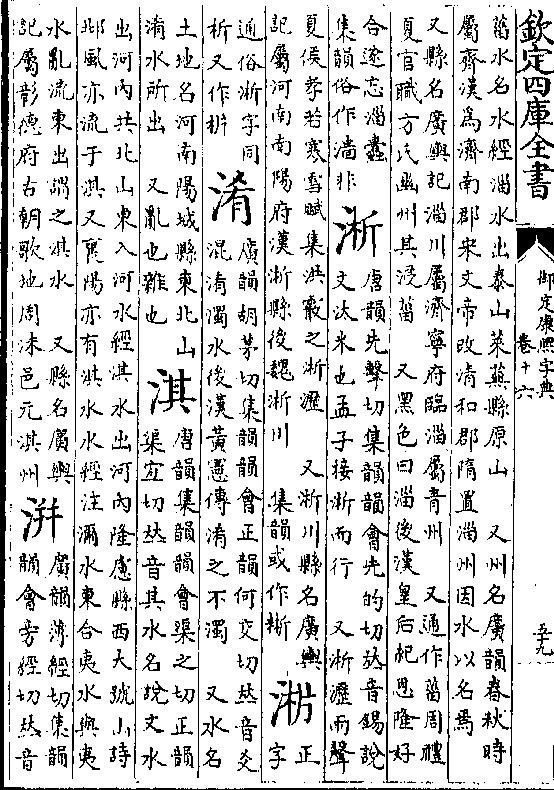 欽定四庫全書
御定康熙字典
卷十六
五九
葘水名水經淄水出泰山萊蕪縣原山 又州名廣韻春秋時
屬齊漢爲濟南郡宋文帝改清和郡隋置淄州因水以名焉
又縣名廣輿記淄川屬濟寧府臨淄屬青州 又通作葘周禮
夏官職方氏幽州其浸葘 又黑色曰淄後漢皇后紀恩隆好
合遂忘淄蠹
集韻俗作湽非
淅
唐韻先擊切集韻韻會先的切𠀤音錫說
文汏米也孟子接淅而行 又淅瀝雨聲
夏侯孝若寒雪賦集洪霰之淅瀝 又淅川縣名廣輿
記屬河南南陽府漢淅縣後魏淅川 集韻或作㯕
淅
正字
通俗淅字同
析又作㭊
淆
廣韻胡茅切集韻韻會正韻何交切𠀤音爻
混淆濁水後漢黃憲傳淆之不濁 又水名
土地名河南陽城縣東北山
淆水所出 又亂也雜也
淇
唐韻集韻韻會渠之切正韻
渠宜切𠀤音其水名說文水
出河內共北山東入河水經淇水出河內隆慮縣西大號山詩
邶風亦流于淇又襄陽亦有淇水水經注瀰水東合夷水與夷
水亂流東出謂之淇水 又縣名廣輿
記屬彰德府古朝歌地周沬邑元淇州
洴
廣韻薄經切集韻
韻會旁經切𠀤音